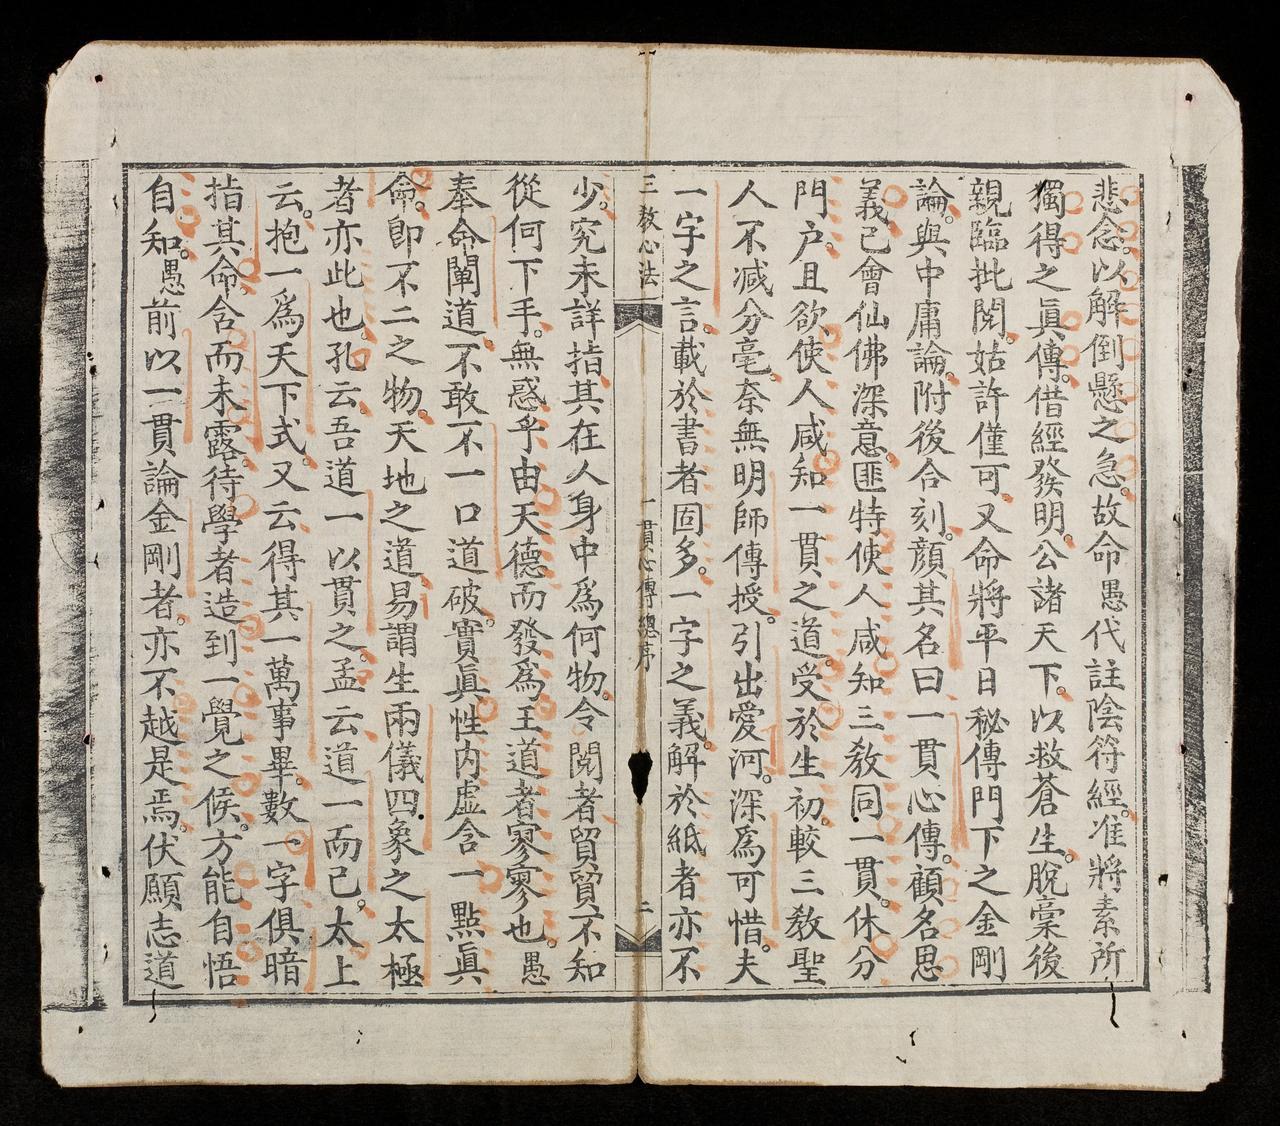 悲念。以解倒懸之急。故命愚代註陰符經。准將素所
獨得之眞傳。借經發明。公諸天下。以救蒼生。脫稾後
親臨批閱。姑許僅可。又命將平日秘傳門下之金剛
論。與中庸論。附後合刻。顏其名曰一貫心傳。顧名思
義。已會仙佛深意。匪特使人咸知三敎同一貫。休分
門戶。且欲使人咸知一貫之道。受於生初。較三敎聖
人不減分毫。奈無明師傳授。引出愛河。深爲可惜。夫
一字之言。載於書者固多。一字之義。解於紙者亦不
三敎心法 一貫心傳總序 二
少。究未詳指其在人身中爲何物。令閱者貿貿不知
從何下手。無惑乎由天德而發爲王道者寥寥也。愚
奉命闡道。不敢不一口道破。實眞性內虛含一點眞
命。卽不二之物。天地之道。易謂生兩儀四象之太極
者亦此也。孔云。吾道一以貫之。孟云道一而已。太上
云。抱一爲天下式。又云得其一萬事畢。數一字俱暗
指其命。含而未露。待學者造到一覺之候。方能自悟
自知。愚前以一貫論金剛者。亦不越是焉。伏願志道